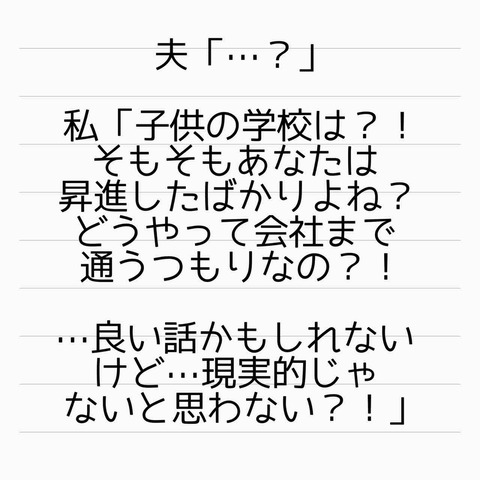 夫「…？」
私「子供の学校は？！
そもそもあなたは
昇進したばかりよね？
どうやって会社まで
通うつもりなの？！
…良い話かもしれない
けど…現実的じゃ
ないと思わない？！」